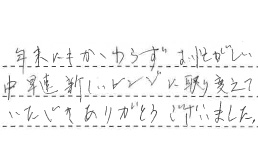 年末にもかかわらずお忙がしい
中早速新しいレンジに取り変えて
いただきありがとうございました。